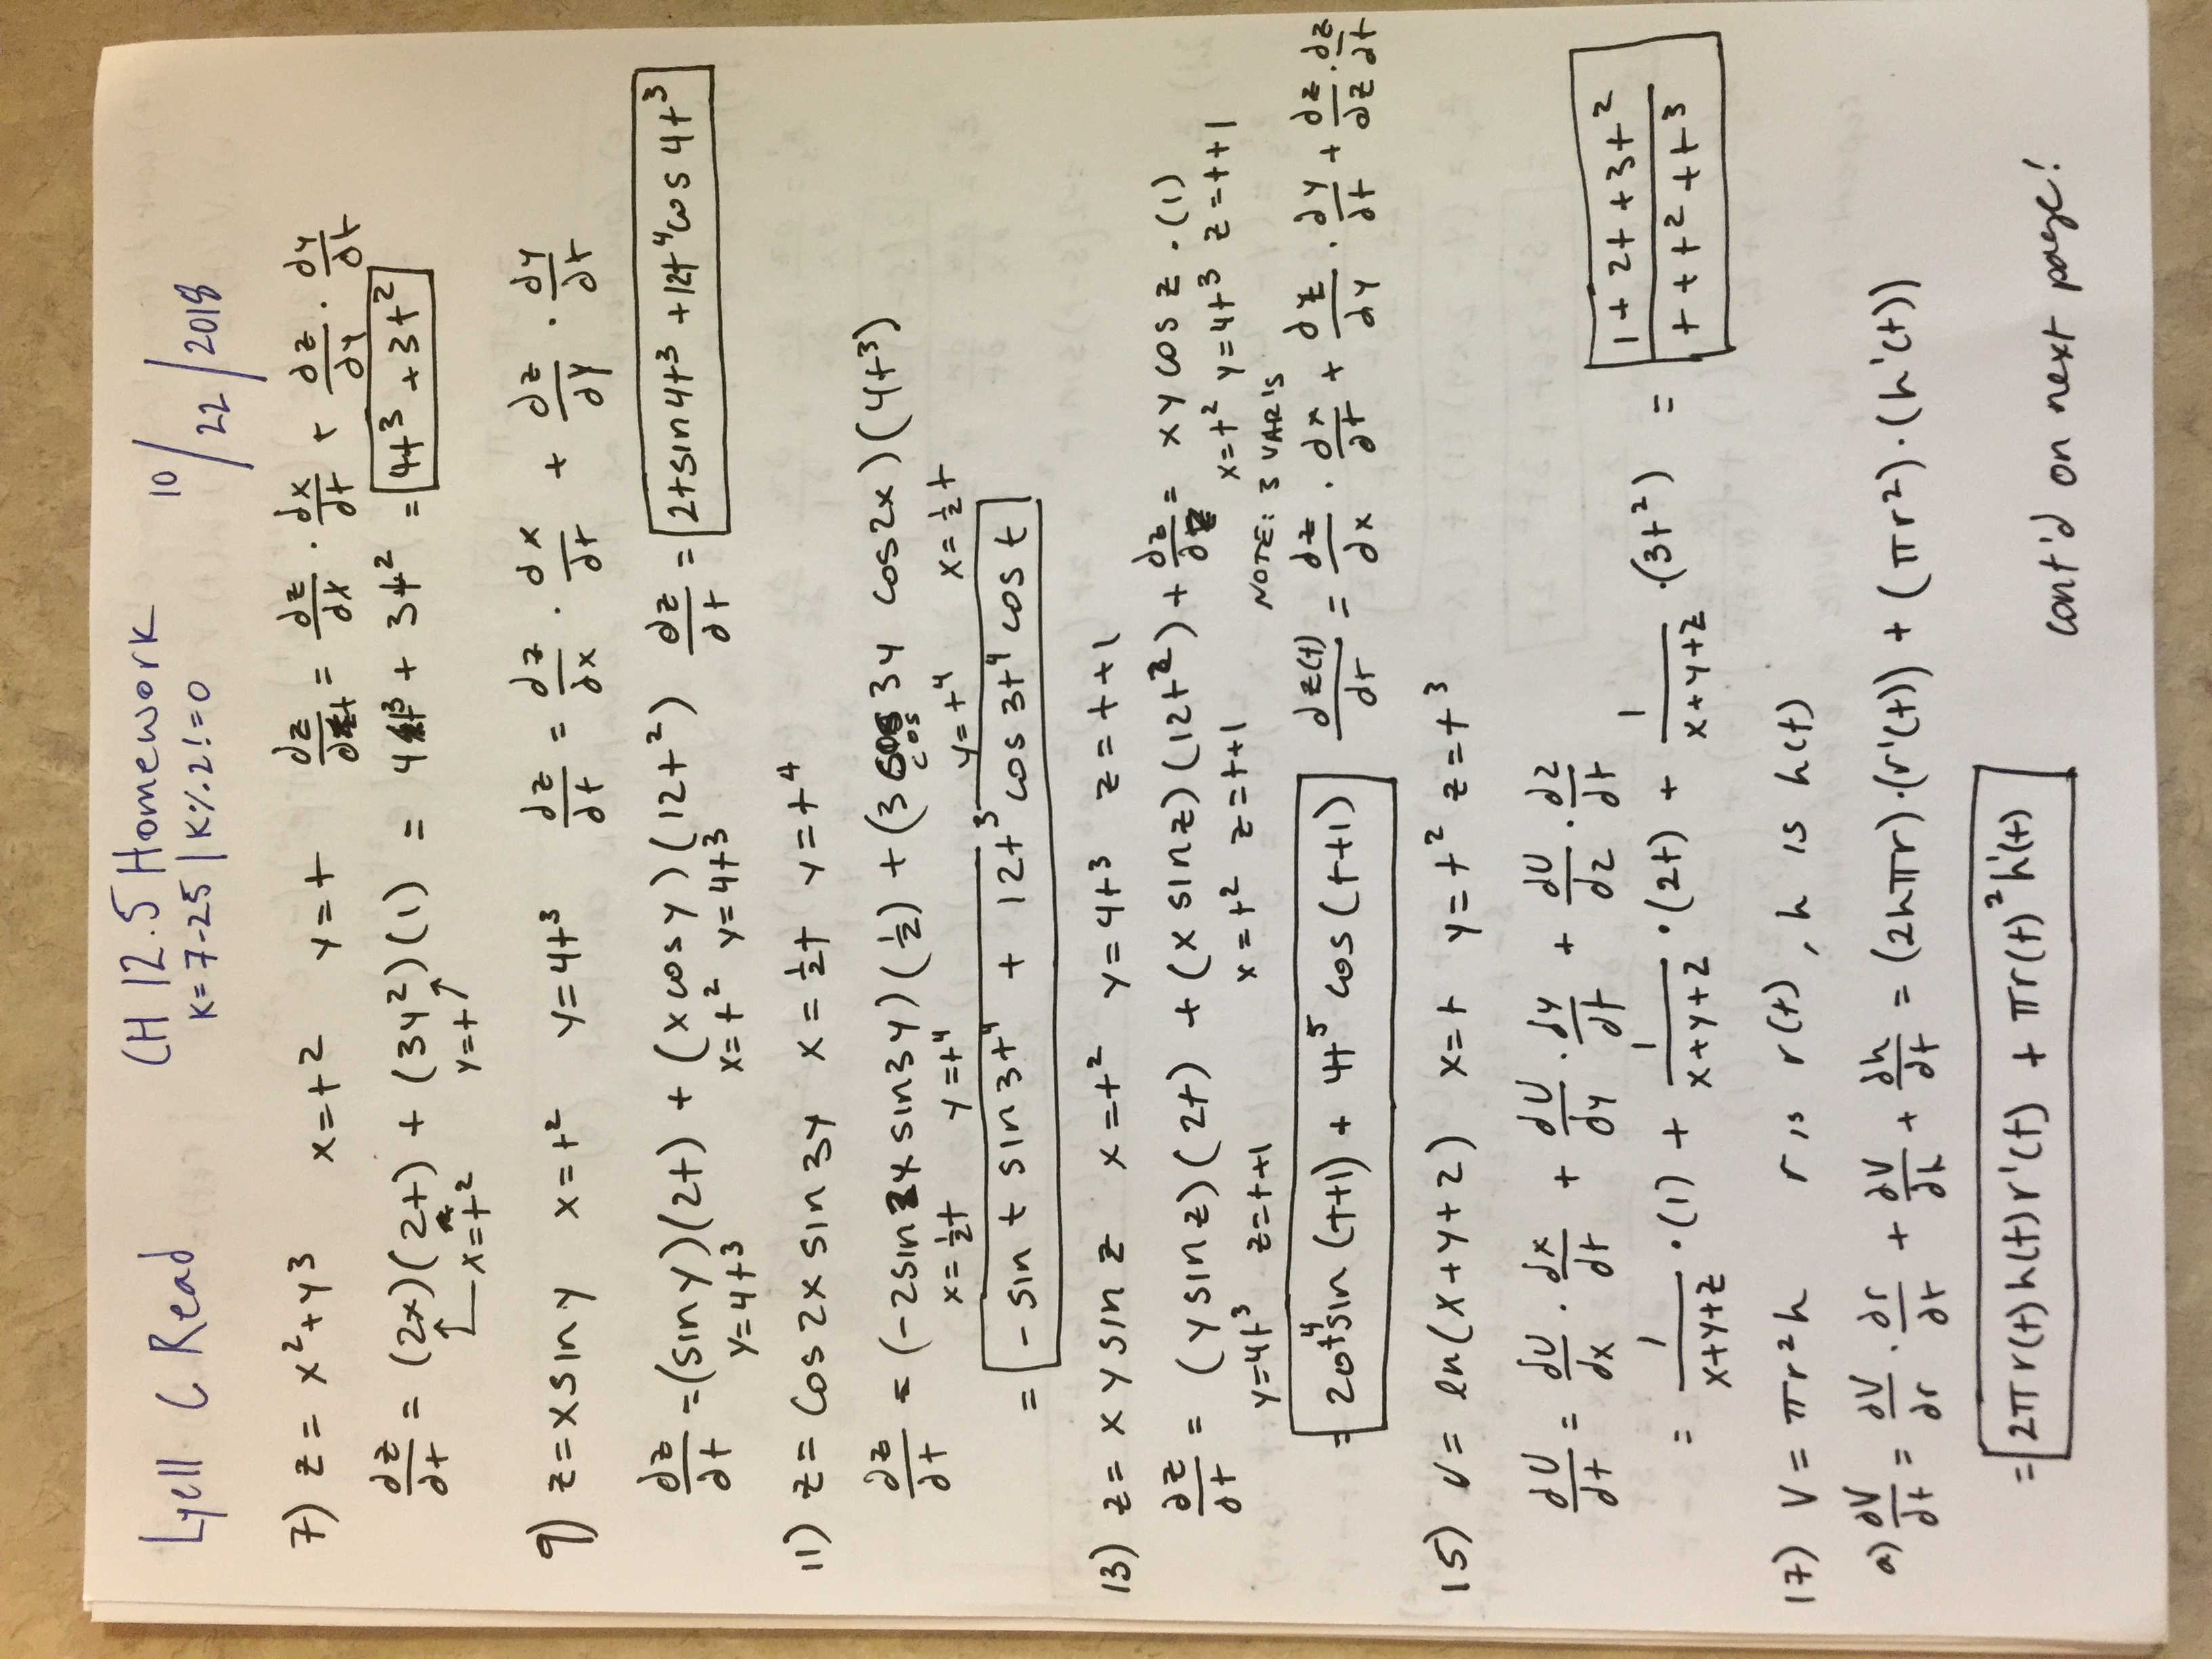 Lyell C Read CH 12.5 Homework 10/22/2018
K=7-25 | K%2!=0
7) z = x²+y³ x=t² y=t dz/dt = dz/dx · dx/dt + dz/dy · dy/dt
dz/dt = (2x)(2t) + (3y²)(1) = 4t³ + 3t² = 4t³+3t²
x=t² y=t
9) z=xsiny x=t² y=4t³ dz/dt = dz/dx · dx/dt + dz/dy · dy/dt
dz/dt =(siny)(2t) + (xcosy)(12t²) dz/dt = 2tsin4t³ +12t⁴cos4t³
y=4t³ x=t² y=4t³
11) z= cos2x sin3y x=½t y=t⁴
dz/dt = (-2sin2x sin3y)(½) + (3 cos 3y cos2x)(4t³)
x=½t y=t⁴ y=t⁴ x=½t
= -sin t sin3t⁴ + 12t³ cos3t⁴ cos t
13) z= x y sin z x=t² y=4t³ z=t+1
dz/dt = (y sinz)(2t) + (x sinz)(12t²) + dz/dz = xy cos z · (1)
y=4t³ z=t+1 x=t² z=t+1 x=t² y=4t³ z=t+1
NOTE: 3 VAR'S
= 20t⁴sin(t+1) + 4t⁵ cos(t+1) dz(t)/dt = dz/dx · dx/dt + dz/dy · dy/dt + dz/dz · dz/dt
15) U= ln(x+y+z) x=t y=t² z=t³
dU/dt = dU/dx · dx/dt + dU/dy · dy/dt + dU/dz · dz/dt
= 1/(x+y+z) ·(1) + 1/(x+y+z) ·(2t) + 1/(x+y+z) ·(3t²) = (1+2t+3t²)/(t+t²+t³)
17) V= πr²h r is r(t), h is h(t)
a) dV/dt = dV/dr · dr/dt + dV/dh + dh/dt = (2hπr)·(r'(t)) + (πr²)·(h'(t))
= 2πr(t)h(t)r'(t) + πr(t)²h'(t)
cont'd on next page!